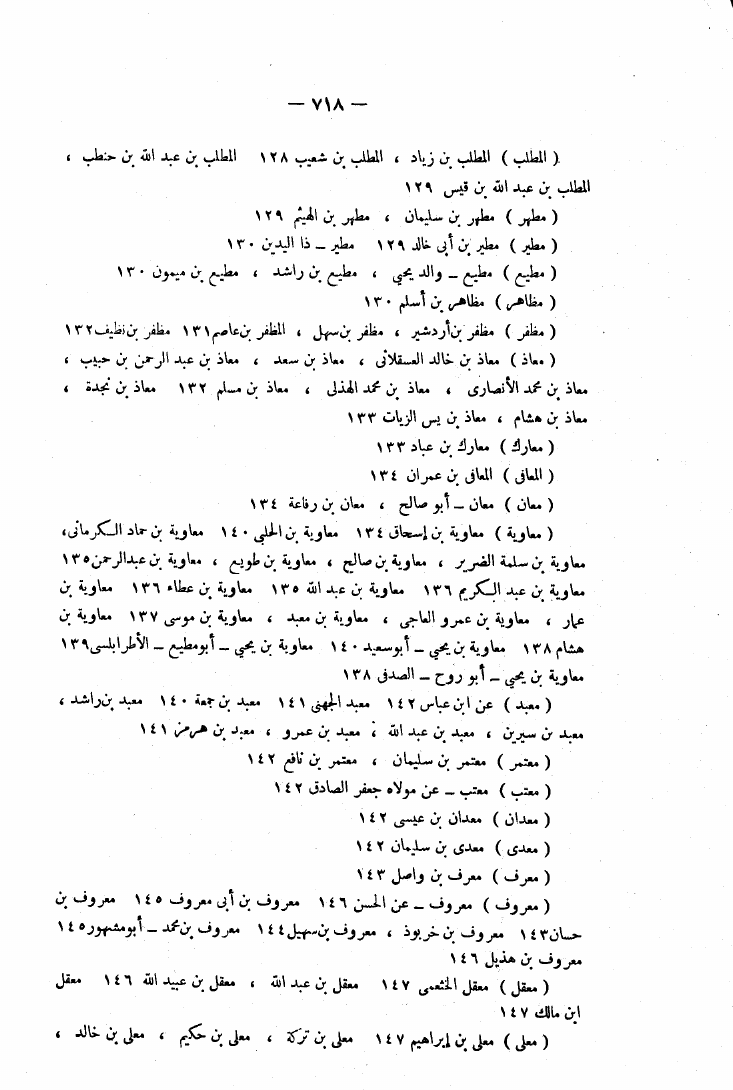 — ٧١٨ —
( المطلب ) المطلب بن زياد ، المطلب بن شعيب ١٢٨ المطلب بن عبد الله بن حنطب ،
المطلب بن عبد الله بن قيس ١٢٩
( مطهر ) مطهر بن سليمان ، مطهر بن الهيثم ١٢٩
( مطير ) مطير بن أبى خالد ١٢٩ مطير ــ ذا اليدين ١٣٠
( مطيع ) مطيع ــ والد يحيى ، مطيع بن راشد ، مطيع بن ميمون ١٣٠
( مظاهر ) مظاهر بن أسلم ١٣٠
( مظفر ) مظفر بن أردشير ، مظفر بن سهل ، المظفر بن عاصم ١٣١ مظفر بن نظيف ١٣٢
( معاذ ) معاذ بن خالد العسقلانى ، معاذ بن سعد ، معاذ بن عبد الرحمن بن حبيب ،
معاذ بن محمد الأنصارى ، معاذ بن محمد الهذلى ، معاذ بن مسلم ١٣٢ معاذ بن نجدة ،
معاذ بن هشام ، معاذ بن يس الزيات ١٣٣
( معارك ) معارك بن عباد ١٣٣
( المعافى ) المعافى بن عمران ١٣٤
( معان ) معان ــ أبو صالح ، معان بن رفاعة ١٣٤
( معاوية ) معاوية بن إسحاق ١٣٤ معاوية بن الحلبى ١٤٠ معاوية بن حماد الكرمانى ،
معاوية بن سلمة الضرير ، معاوية بن صالح ، معاوية بن طويع ، معاوية بن عبد الرحمن ١٣٥
معاوية بن عبد الكريم ١٣٦ معاوية بن عبد الله ١٣٥ معاوية بن عطاء ١٣٦ معاوية بن
عمار ، معاوية بن عمرو العاجى ، معاوية بن معبد ، معاوية بن موسى ١٣٧ معاوية بن
هشام ١٣٨ معاوية بن يحيى ــ أبو سعيد ١٤٠ معاوية بن يحيى ــ أبو مطيع ــ الأطرابلسى ١٣٩
معاوية بن يحيى ــ أبو روح ــ الصدفى ١٣٨
( معبد ) عن ابن عباس ١٤٢ معبد الجهنى ١٤١ معبد بن جمعة ١٤٠ معبد بن راشد ،
معبد بن سيرين ، معبد بن عبد الله ، معبد بن عمرو ، معبد بن هرمز ١٤١
( معتمر ) معتمر بن سليمان ، معتمر بن نافع ١٤٢
( معتب ) معتب ــ عن مولاه جعفر الصادق ١٤٢
( معدان ) معدان بن عيسى ١٤٢
( معدى ) معدى بن سليمان ١٤٢
( معرف ) معرف بن واصل ١٤٣
( معروف ) معروف ــ عن الحسن ١٤٦ معروف بن أبى معروف ١٤٥ معروف بن
حسان ١٤٣ معروف بن خربوذ ، معروف بن سهيل ١٤٤ معروف بن محمد ــ أبو مشهور ١٤٥
معروف بن هذيل ١٤٦
( معقل ) معقل الخثعمى ١٤٧ معقل بن عبد الله ، معقل بن عبيد الله ١٤٦ معقل
ابن مالك ١٤٧
( معلى ) معلى بن إبراهيم ١٤٧ معلى بن تركة ، معلى بن حكيم ، معلى بن خالد ،